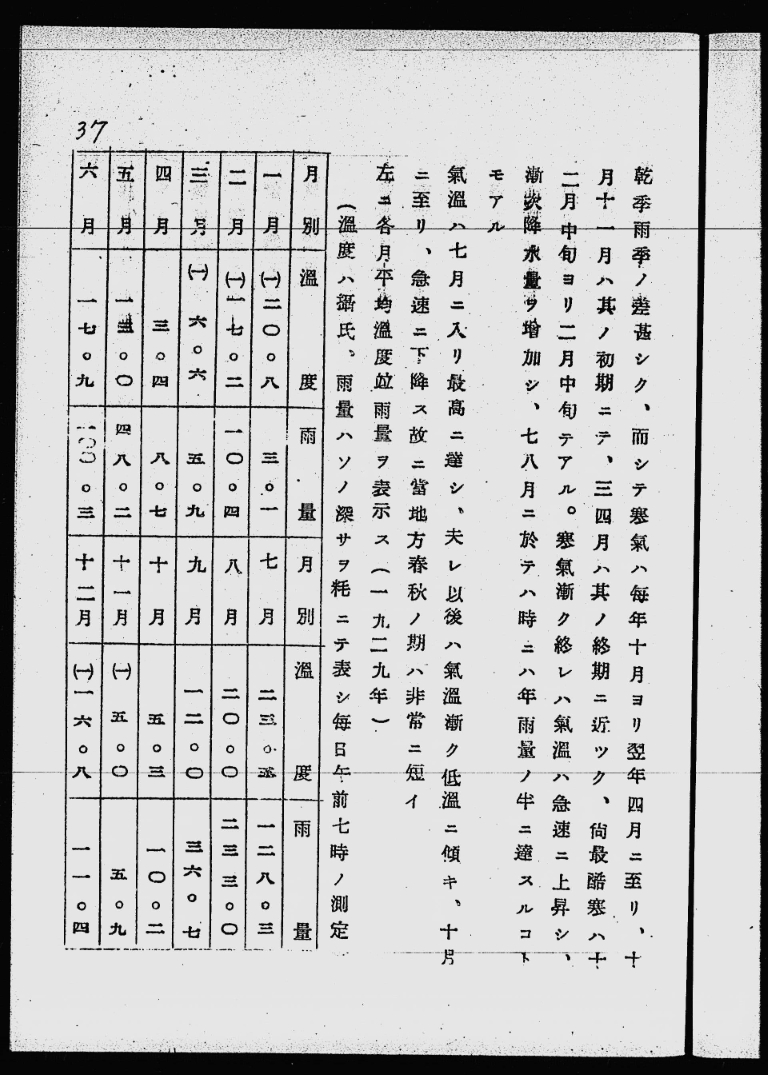 37
乾季雨季ノ差甚シク、而シテ寒氣ハ每年十月ヨリ翌年四月ニ至リ、十
月十一月ハ其ノ初期ニテ、三四月ハ其ノ終期ニ近ツク、尙最酷寒ハ十
二月中旬ヨリ二月中旬テアル。寒氣漸ク終レハ氣溫ハ急速ニ上昇シ、
漸次降水量ヲ增加シ、七八月ニ於テハ時ニハ年雨量ノ半ニ達スルコト
モアル
氣溫ハ七月ニ入リ最高ニ達シ、夫レ以後ハ氣溫漸ク低溫ニ傾キ、十月
ニ至リ、急速ニ下降ス故ニ當地方春秋ノ期ハ非常ニ短イ
左ニ各月平均溫度竝雨量ヲ表示ス(一九二九年)
(溫度ハ攝氏、雨量ハソノ深サヲ粍ニテ表シ每日午前七時ノ測定
月別 溫度 雨量 月別 溫度 雨量
一月 (一)二〇・八 三・一 七月 二三・五 一二八・三
二月 (一)一七・二 一〇・四 八月 二〇・〇 二三三・〇
三月 (一)六・六 五・九 九月 一二・〇 三六・七
四月 三・四 八・七 十月 五・三 一〇・二
五月 一三・〇 四八・二 十一月 (一)五・〇 五・九
六月 一七・九 一〇〇・三 十二月 (一)一六・八 一一・四